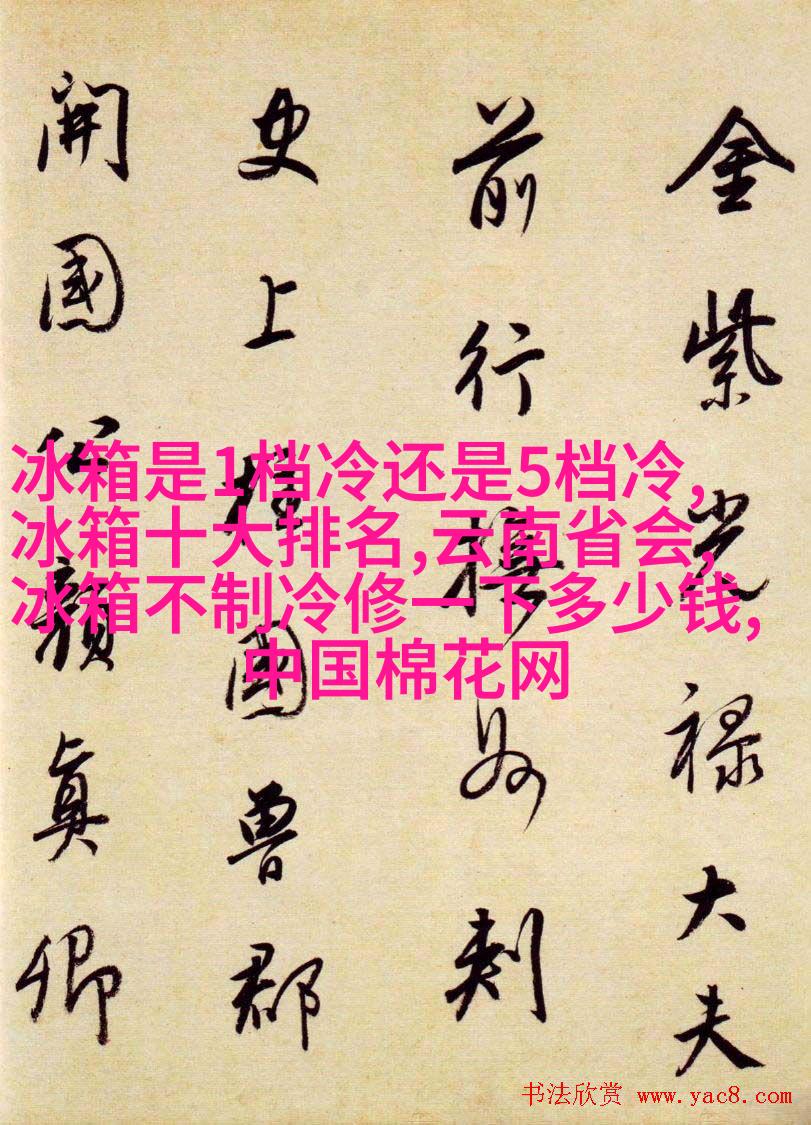 金紫光禄大夫
前行撫州刺
史上柱國魯郡
開國公顔真卿
冰箱是1档冷还是5档冷,
冰箱十大排名,云南省会,
冰箱不制冷修一下多少钱,
中国棉花网
书法欣赏 www.yac8.com